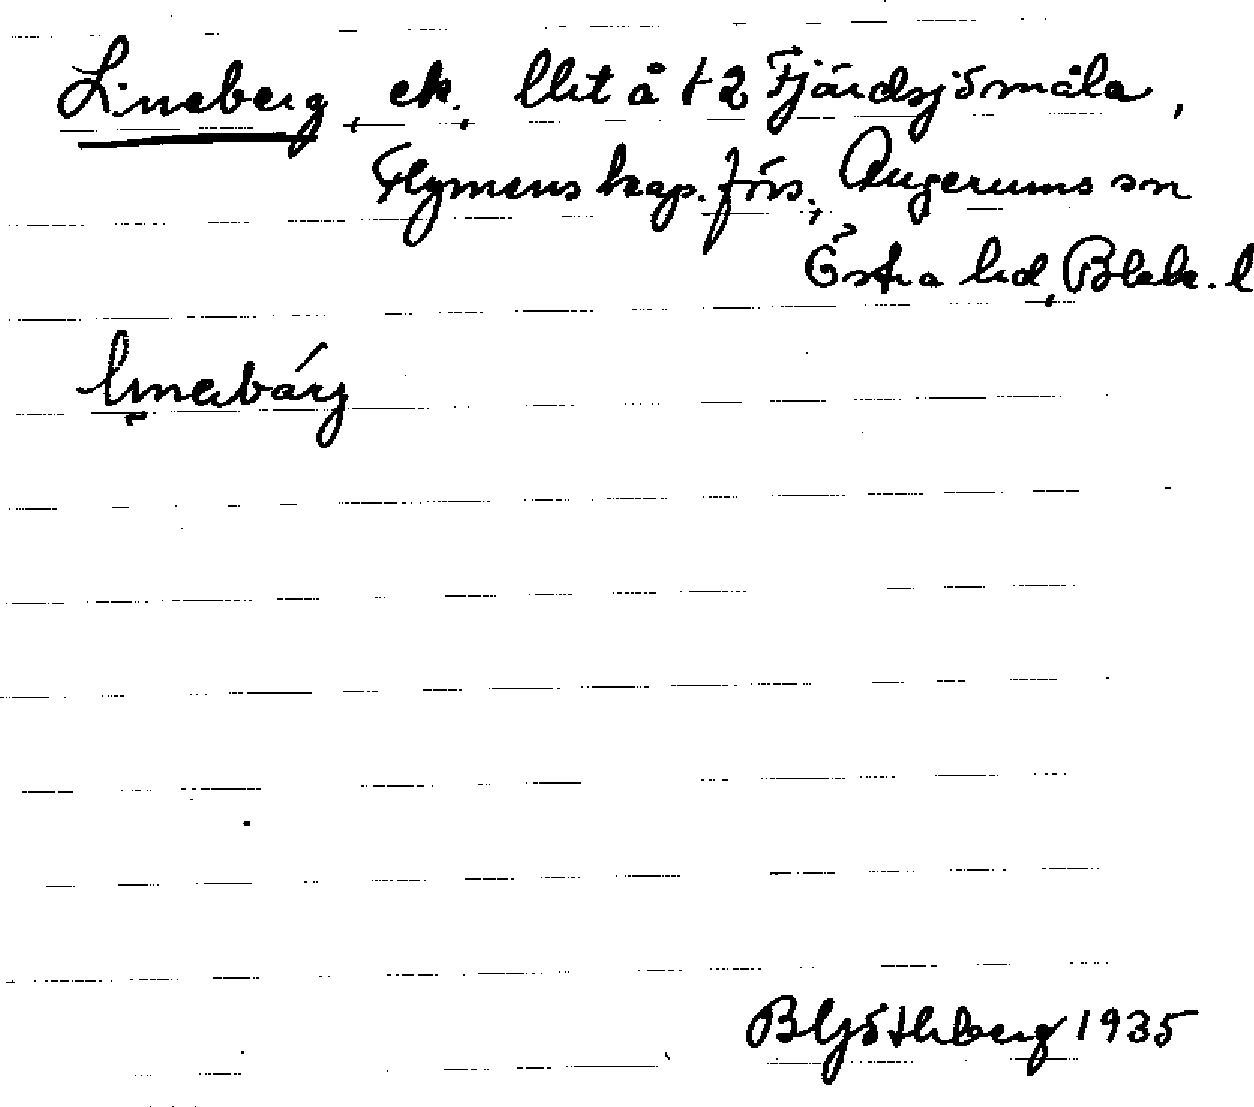 Lineberg, ek. llit å 1-2 Fjärdsjömåla,
Flymens kap. förs., Augerums sn
Östra hd, Blek. l
B Göthberg 1935